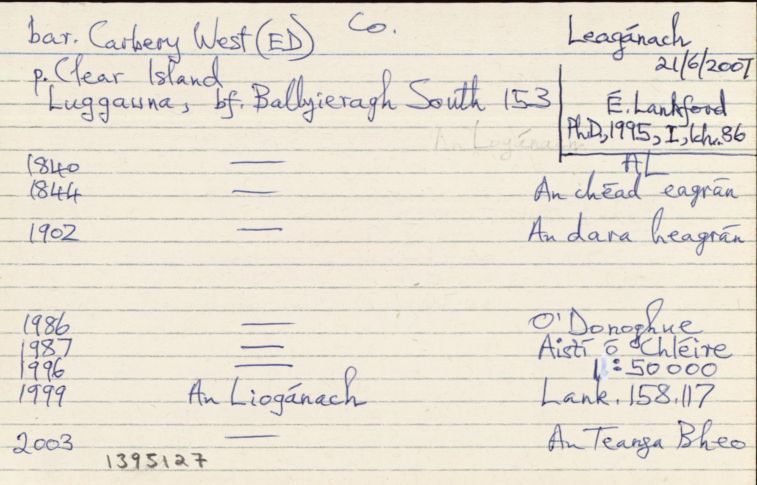 bar. Carbery West (ED) Co. Leagánach
21/6/2007
p. Clear Island
Luggawna, bf. Ballyieragh South 153
É. Lankford
PhD, 1995, I, lch. 86
An Leogánach
1840 — AL
1844 — An chéad eagrán
1902 — An dara heagrán
1986 — O'Donoghue
1987 — Aistí ó Chléire
1996 — 1:50000
1999 An Liogánach Lank. 158.117
2003 — An Teanga Bheo
1395127